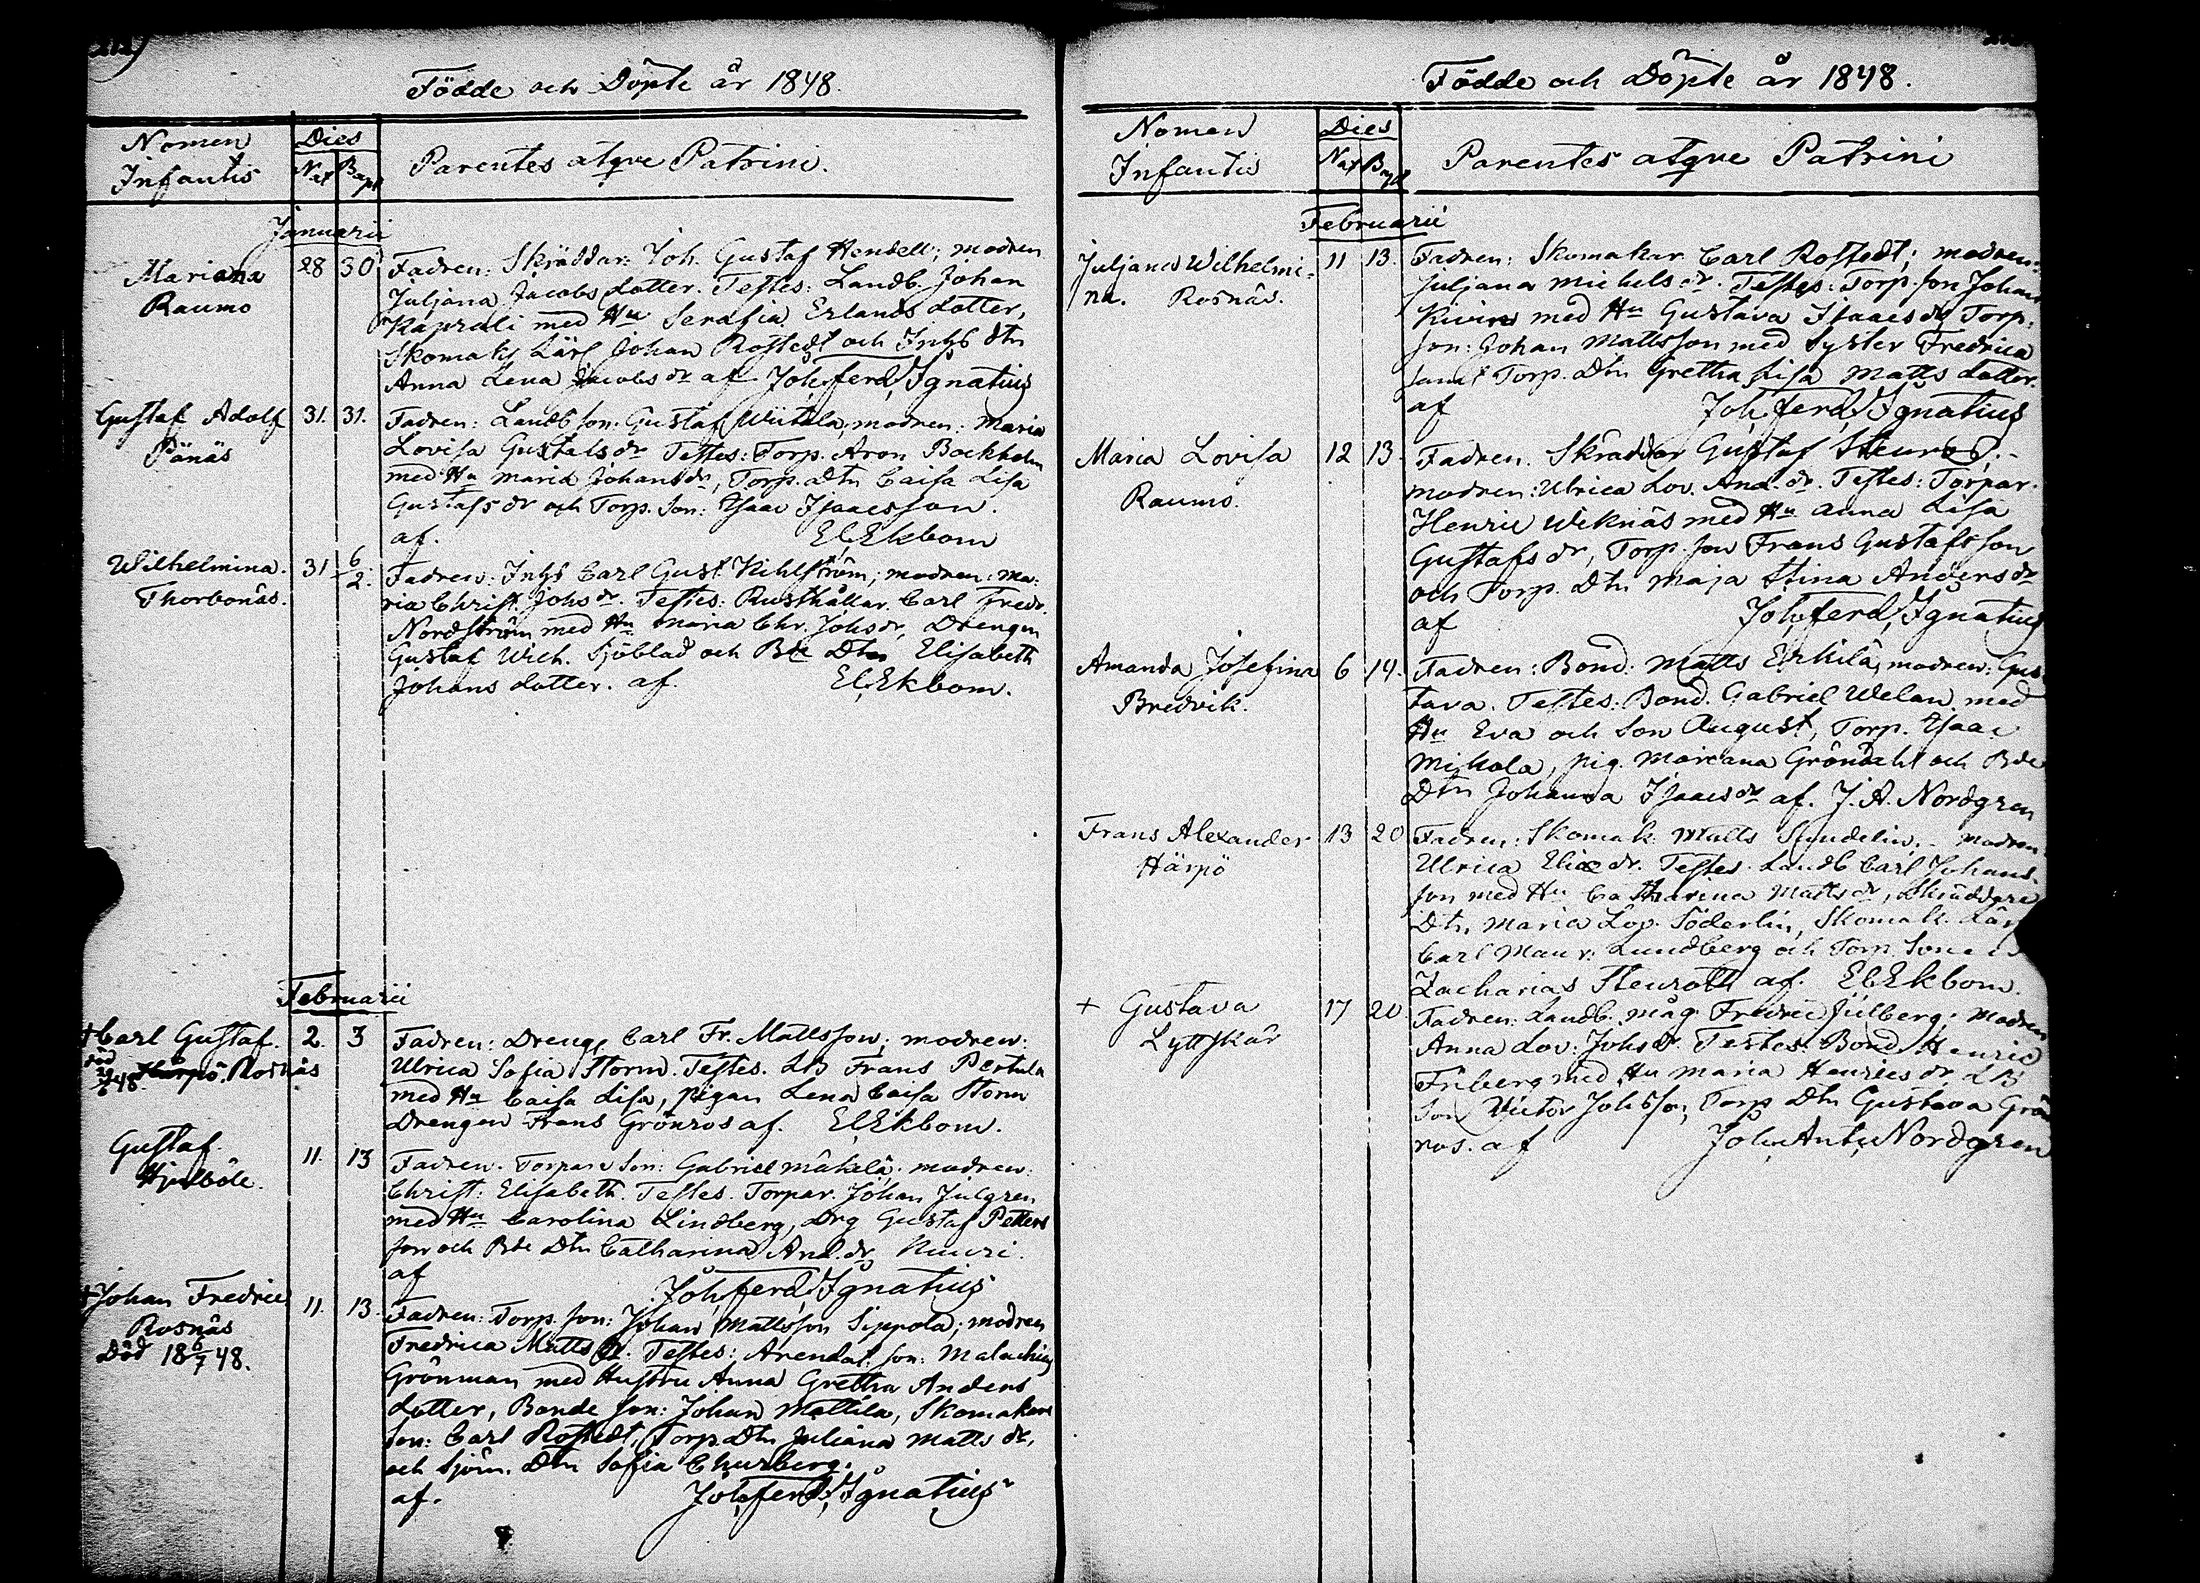 Födde och Döpte år 1848.
Nomen Infantis
Dies
Nat Bapt
Parentes atqve Patrini.
Januarii
Mariana 28 30 Fadren: Skräddar: Joh. Gustaf Hendell; modren
Raumo Juljana Jacobs dotter. Testes: Landb. Johan
Kaprali med Hu Serafia Erlands dotter,
Skomak Lärl Johan Rostedt och Inhs dtr
Anna Lena Jacobs dr af Joh, ferd, Ignatius
Gustaf Adolf 31. 31. Fadren: Landb son: Gustaf Wiitala, modren: Maria
Pänäs Lovisa Gustafs dr Testes: Torp. Aron Bockholm
med Hu maria Johans dr, Torp. dtr Caisa Lisa
Gustafs dr och Torp. Son: Isaac Isaacsson.
af. El, Ekbom
Wilhelmina. 31 6/2. Fadren: Inhs Carl Gust. Kihlström; modren: Ma-
Thorbonäs. ria Christ. Johs dr. Testes: Rusthållar. Carl Fredr.
Nordström med Hu Maria Chr. Johs dr, Drengen
Gustaf Wilh. Sjöblad och Bde Dtr Elisabeth
Johans dotter. af. El, Ekbom.
Februarii
+ Carl Gustaf. 2. 3 Fadren: Dreng Carl Fr. Mattsson; modren:
Rosnäs Ulrica Sofia Storm. Testes. LB Frans Pertula
med Hu Caisa Lisa, pigan Lena Caisa Storm
Drengen Frans Grönros af. El, Ekbom.
Gustaf. 11. 13 Fadren. Torpare Son: Gabriel Mäkelä; modren:
Hjelböle. Christ: Elisabeth. Testes. Torpar. Johan Julgren
med Hu Carolina Lindberg, Drg Gustaf Petters
son och Bde Dtr Catharina And. dr Knuri.
af Joh, ferd, Ignatius
+ Johan Fredric 11. 13. Fadren: Torp. son: Johan Mattsson Sippola; modren
Rosnäs Fredrica Matts dr. Testes: Arendat. son: Malachias
Död 18 6/7 48. Grönman med Hustru Anna Gretha Anders
dotter, Bonde son: Johan Mattila, Skomakare
son: Carl Rostedt, Torp Dtr Juliana Matts dr,
och Sjöm. Dtr Sofia Churberg.
af. Joh, ferd, Ignatius
Födde och Döpte år 1848.
Nomen Infantis
Dies
Nat Bapt
Parentes atqve Patrini
Februarii
Juljana Wilhelmi- 11 13. Fadren: Skomakar Carl Rostedt; modren:
na. Rosnäs. Juljana Michels dr. Testes: Torp. son Johan
med Hu Gustava Isaacs dr Torp.
son: Johan Mattsson med Syster Fredrica
samt Torp. Dtr Gretha Lisa Matts dotter.
af Joh, ferd, Ignatius
Maria Lovisa 12 13. Fadren. Skräddar Gustaf Steuros.
Raumo. modren: Ulrica Lov. And. dr. Testes: Torpar.
Henric Weknäs med Hu Anna Lisa
Gustafs dr, Torp. son Frans Gustafsson
och Torp. Dtr Maja Stina Anders dr
af Joh, ferd, Ignatius
Amanda Josefina 6 19. Fadren: Bond: Matts Erkilä, modren: Gus-
Bredvik. tava. Testes: Bond. Gabriel Welan med
Hu Eva och Son August, Torp. Isaac
Mikola, pig. Mariana Gröndahl och Bde
Dtr Johanna Isaacs dr af. J. A. Nordgren
Frans Alexander 13 20 Fadren: Skomak. Matts modren
Härpö Ulrica Eliæ dr. Testes. Landb Carl Johans-
son med Hu Catharina Matts dr, Skräddare
Dtr, Maria Lov. Söderlin, Skomak. Lärl
Carl Maur. Lundberg och Torp. Sonen
Zacharias Steuroth af. El, Ekbom.
+ Gustava 17 20 Fadren: Landb. måg Fredric Julberg; modren
Lyttskär Anna Lov: Johs dr. Testes: Bond. Henric
Friberg med Hu Maria Henrics dr, LB
Son Victor Johsson, Torp Dtr Gustava Grön
ros. af Joh, Ant, Nordgren